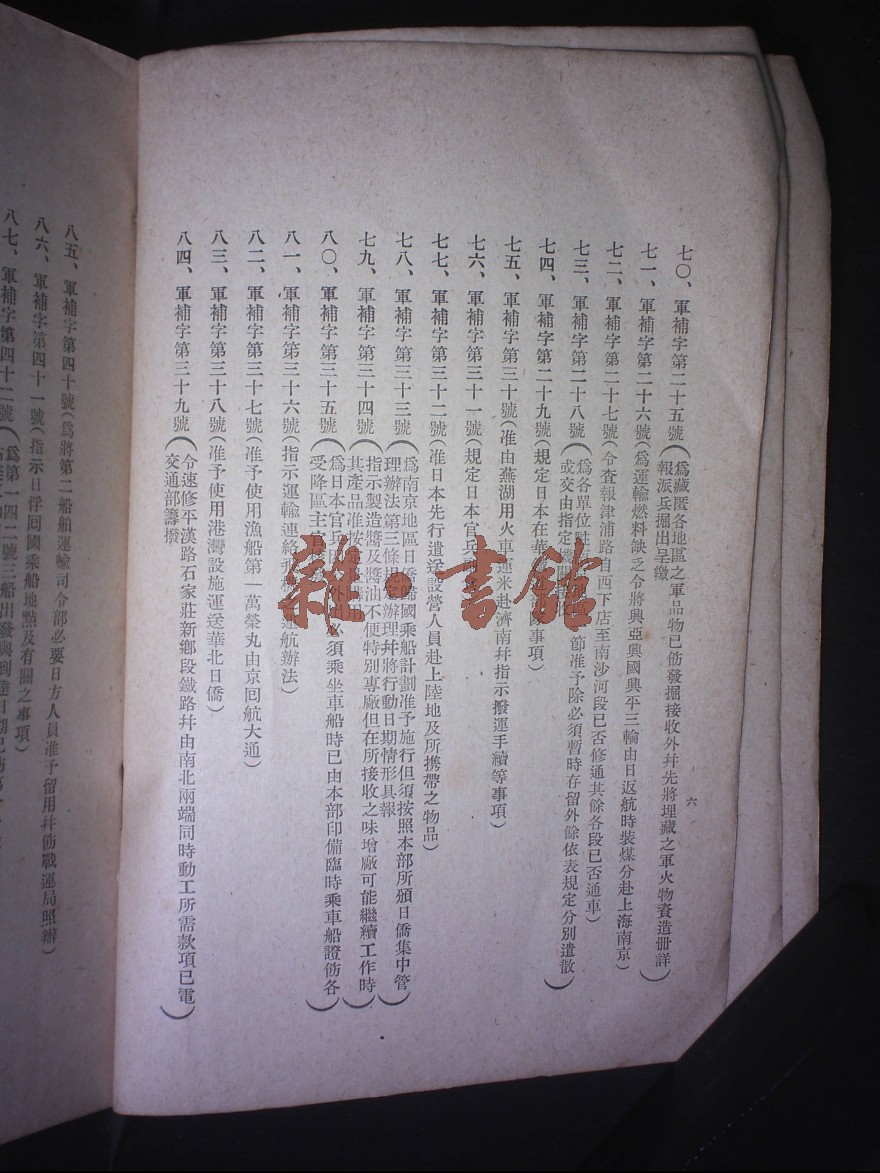 七〇、軍補字第二十五號(爲藏匿各地區之軍品物已飭發掘接收外幷先將埋藏之軍火物資造册詳
報派兵掘出呈繳)
七一、軍補字第二十六號(爲運輸燃料缺乏令將興亞興國興平三輪由日返航時裝煤分赴上海南京)
七二、軍補字第二十七號(令査報津浦路自西下店至南沙河段已否修通其餘各段已否通車)
七三、軍補字第二十八號(爲各單位 節准予除必須暫時存留外餘依表規定分別遣散
或交由指定 )
七四、軍補字第二十九號(規定日本在華 事項)
七五、軍補字第三十號(准由蕪湖用火車運米赴濟南幷指示撥運手續等事項)
七六、軍補字第三十一號(規定日本官兵 )
七七、軍補字第三十二號(准日本先行遣送設營人員赴上陸地及所携帶之物品)
七八、軍補字第三十三號(爲南京地區日僑歸國乘船計劃准予施行但須按照本部所頒日僑集中管
理辦法第三條規定辦理幷將行動日期情形具報)
七九、軍補字第三十四號(指示製造醬及醬油不便特別專廠但在所接收之味增廠可能繼續工作時
其產品准按 )
八〇、軍補字第三十五號(爲日本官兵因 外出必須乘坐車船時已由本部印備臨時乘車船證飭各
受降區主官 )
八一、軍補字第三十六號(指示運輸連絡飛機之運航辦法)
八二、軍補字第三十七號(准予使用漁船第一萬榮丸由京囘航大通)
八三、軍補字第三十八號(准予使用港灣設施運送華北日僑)
八四、軍補字第三十九號(令速修平漢路石家莊新鄉段鐵路幷由南北兩端同時動工所需款項已電
交通部籌撥)
六
八五、軍補字第四十號(爲將第二船舶運輸司令部必要日方人員准予留用幷飭戰運局照辦)
八六、軍補字第四十一號(指示日俘囘國乘船地點及有關之事項)
八七、軍補字第四十二號(爲第一四二號三船出發與到達日期已飭